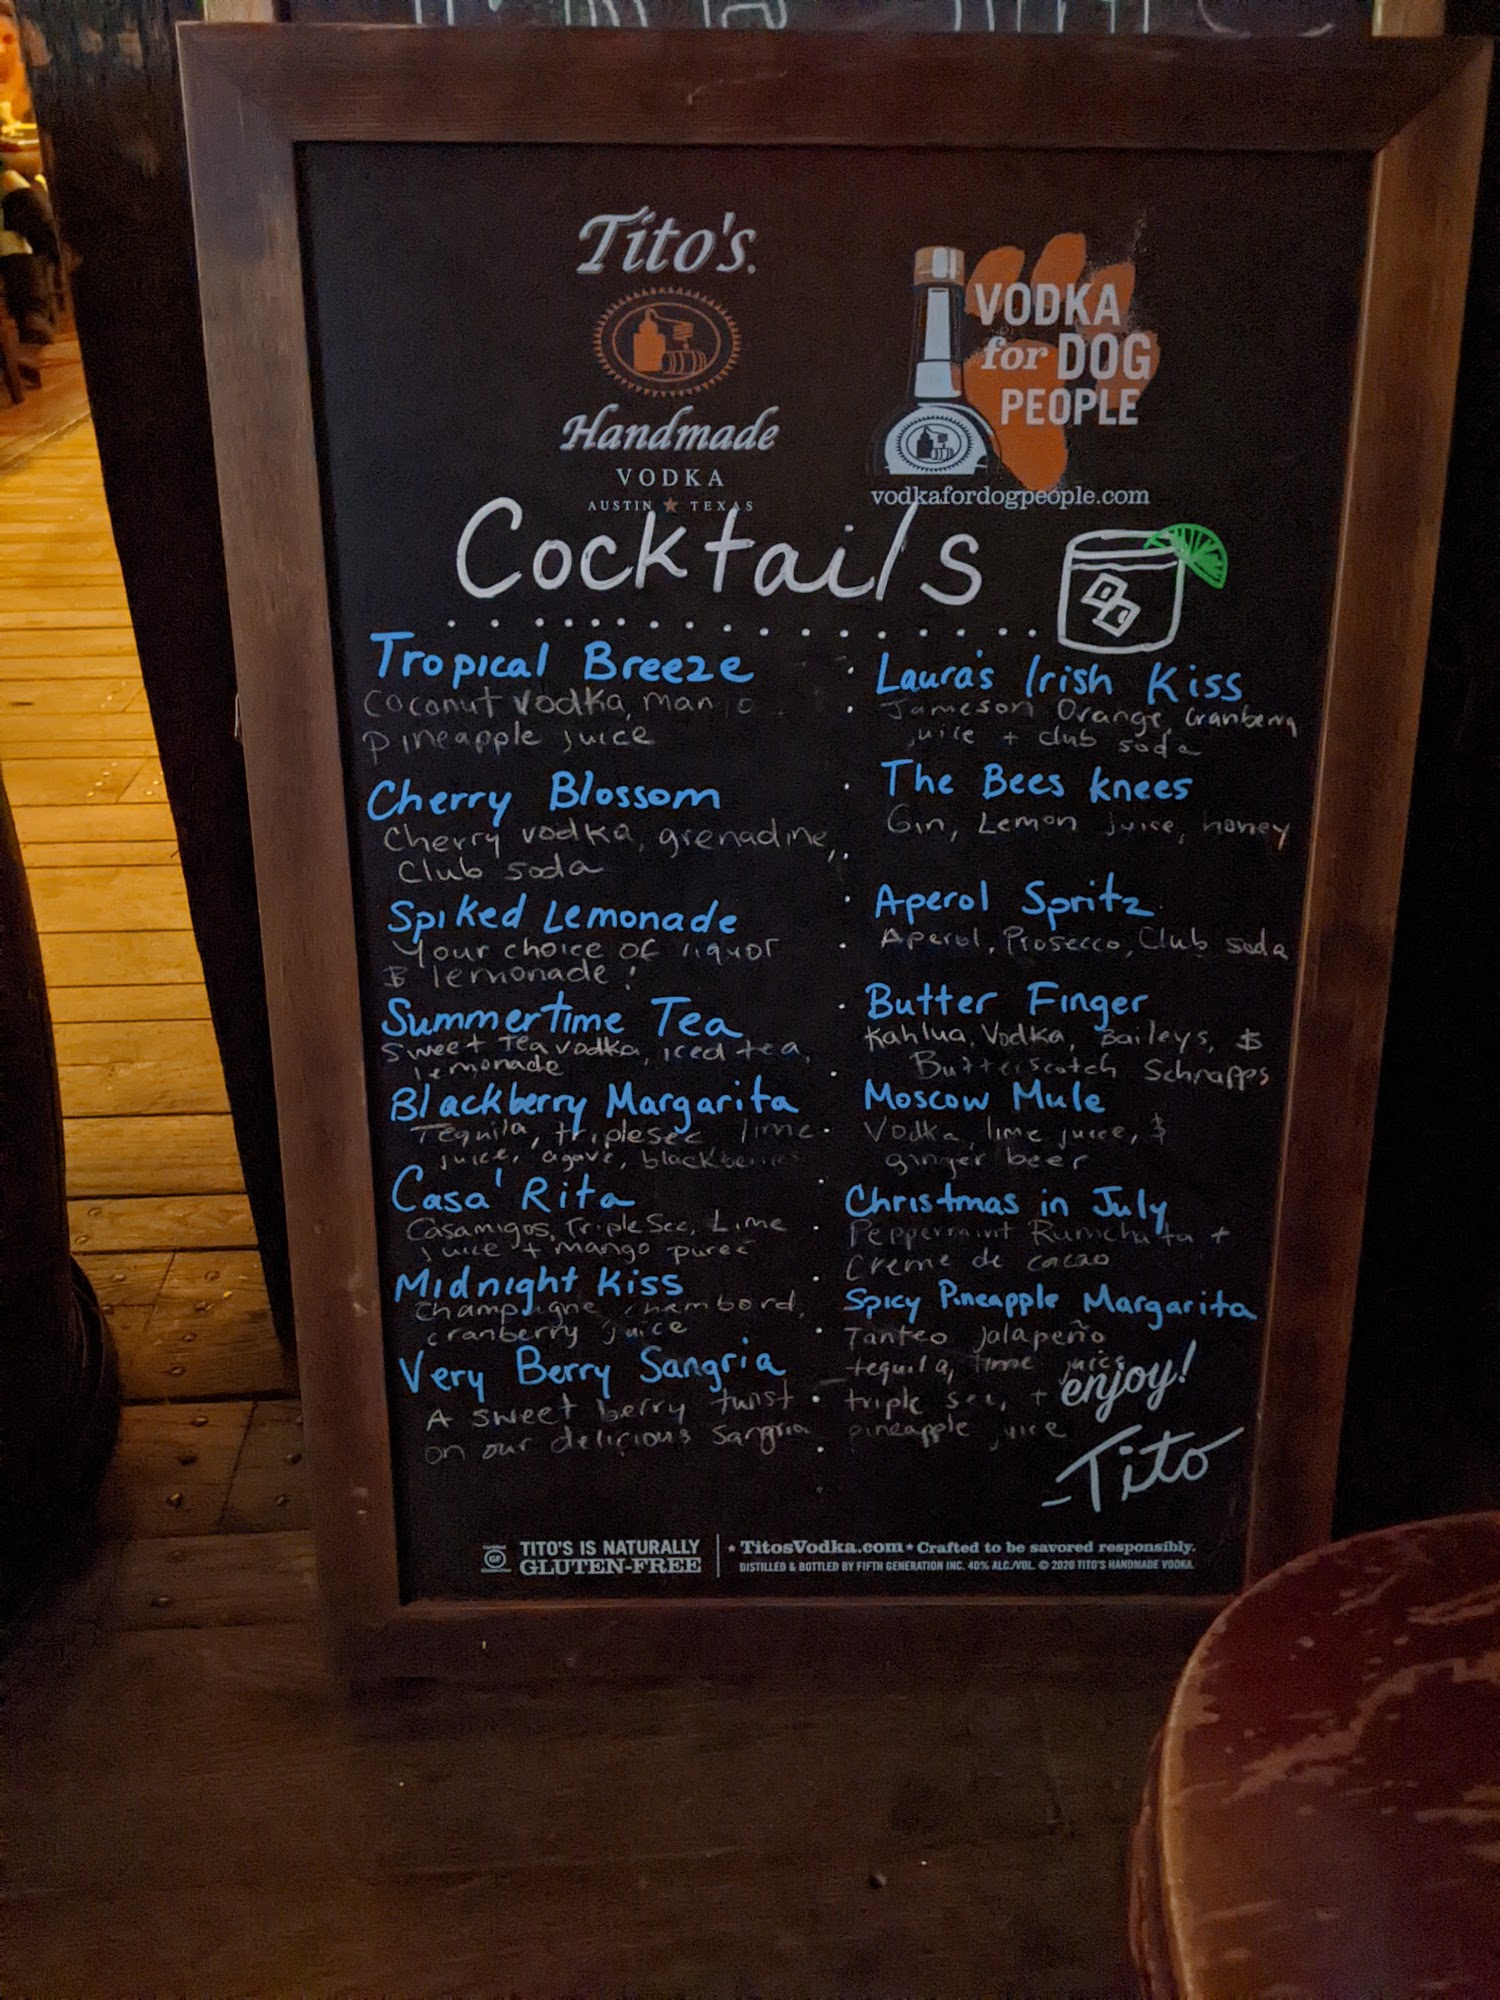 Tito's
Handmade
VODKA
AUSTIN TEXAS
VODKA
for DOG
PEOPLE
vodkafordogpeople.com
Cocktails
Tropical Breeze
Coconut vodka,
pineapple juice
Cherry Blossom
Cherry vodka, grenadine,
Club soda
Spiked Lemonade
Your choice of liquor
& lemonade!
Summertime Tea
Sweet Tea vodka, iced tea,
lemonade
Blackberry Margarita
Tequila, triplesec lime
juice, agave, blackberries
Casa' Rita
Casamigos, Triple Sec, Lime
juice + mango puree
Midnight Kiss
Champagne, chambord,
cranberry juice
Very Berry Sangria
A sweet berry twist
on our delicious Sangria
Laura's Irish Kiss
Jameson Orange, Cranberry
juice + club soda
The Bees knees
Gin, Lemon juice, honey
Aperol Spritz
Aperol, Prosecco, Club soda
Butter Finger
Kahlua, Vodka, Baileys, &
Butterscotch Schnapps
Moscow Mule
Vodka, lime juice, &
ginger beer
Christmas in July
Peppermint Rumchata +
Creme de cacao
Spicy Pineapple Margarita
Tanteo jalapeño
tequila, lime juice
triple sec, +
pineapple juice
enjoy!
-Tito
GF
TITO'S IS NATURALLY
GLUTEN-FREE
TitosVodka.com ★ Crafted to be savored responsibly.
DISTILLED & BOTTLED BY FIFTH GENERATION INC. 40% ALC./VOL. © 2020 TITO'S HANDMADE VODKA.